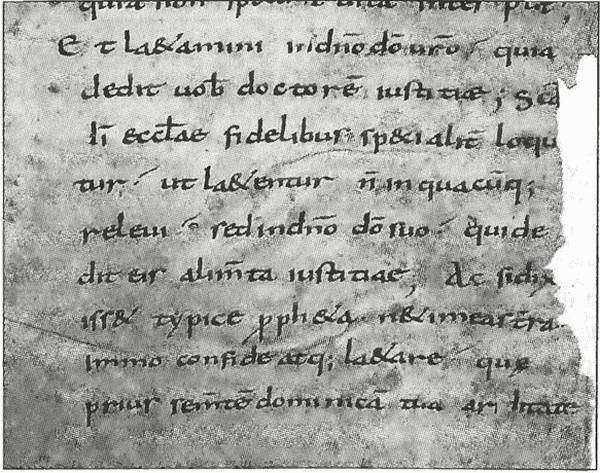 quia non
Et la&amini indn̄o dō ur̄o quia
dedit uob̄ doctorē iustitiae; Scā
lī eccl̄ae fidelibus sp&ialit̄ loqu
tur, ut la&entur n̄ inquacūq;
releui sed indn̄o dō suo quide
dit eis alim̄ta iustitiae, Ac sidix
iss& typice pph&a n&imeas t̄ra
immo confide atq; la&are que
prius sem̄tē dominicā tua ariditate